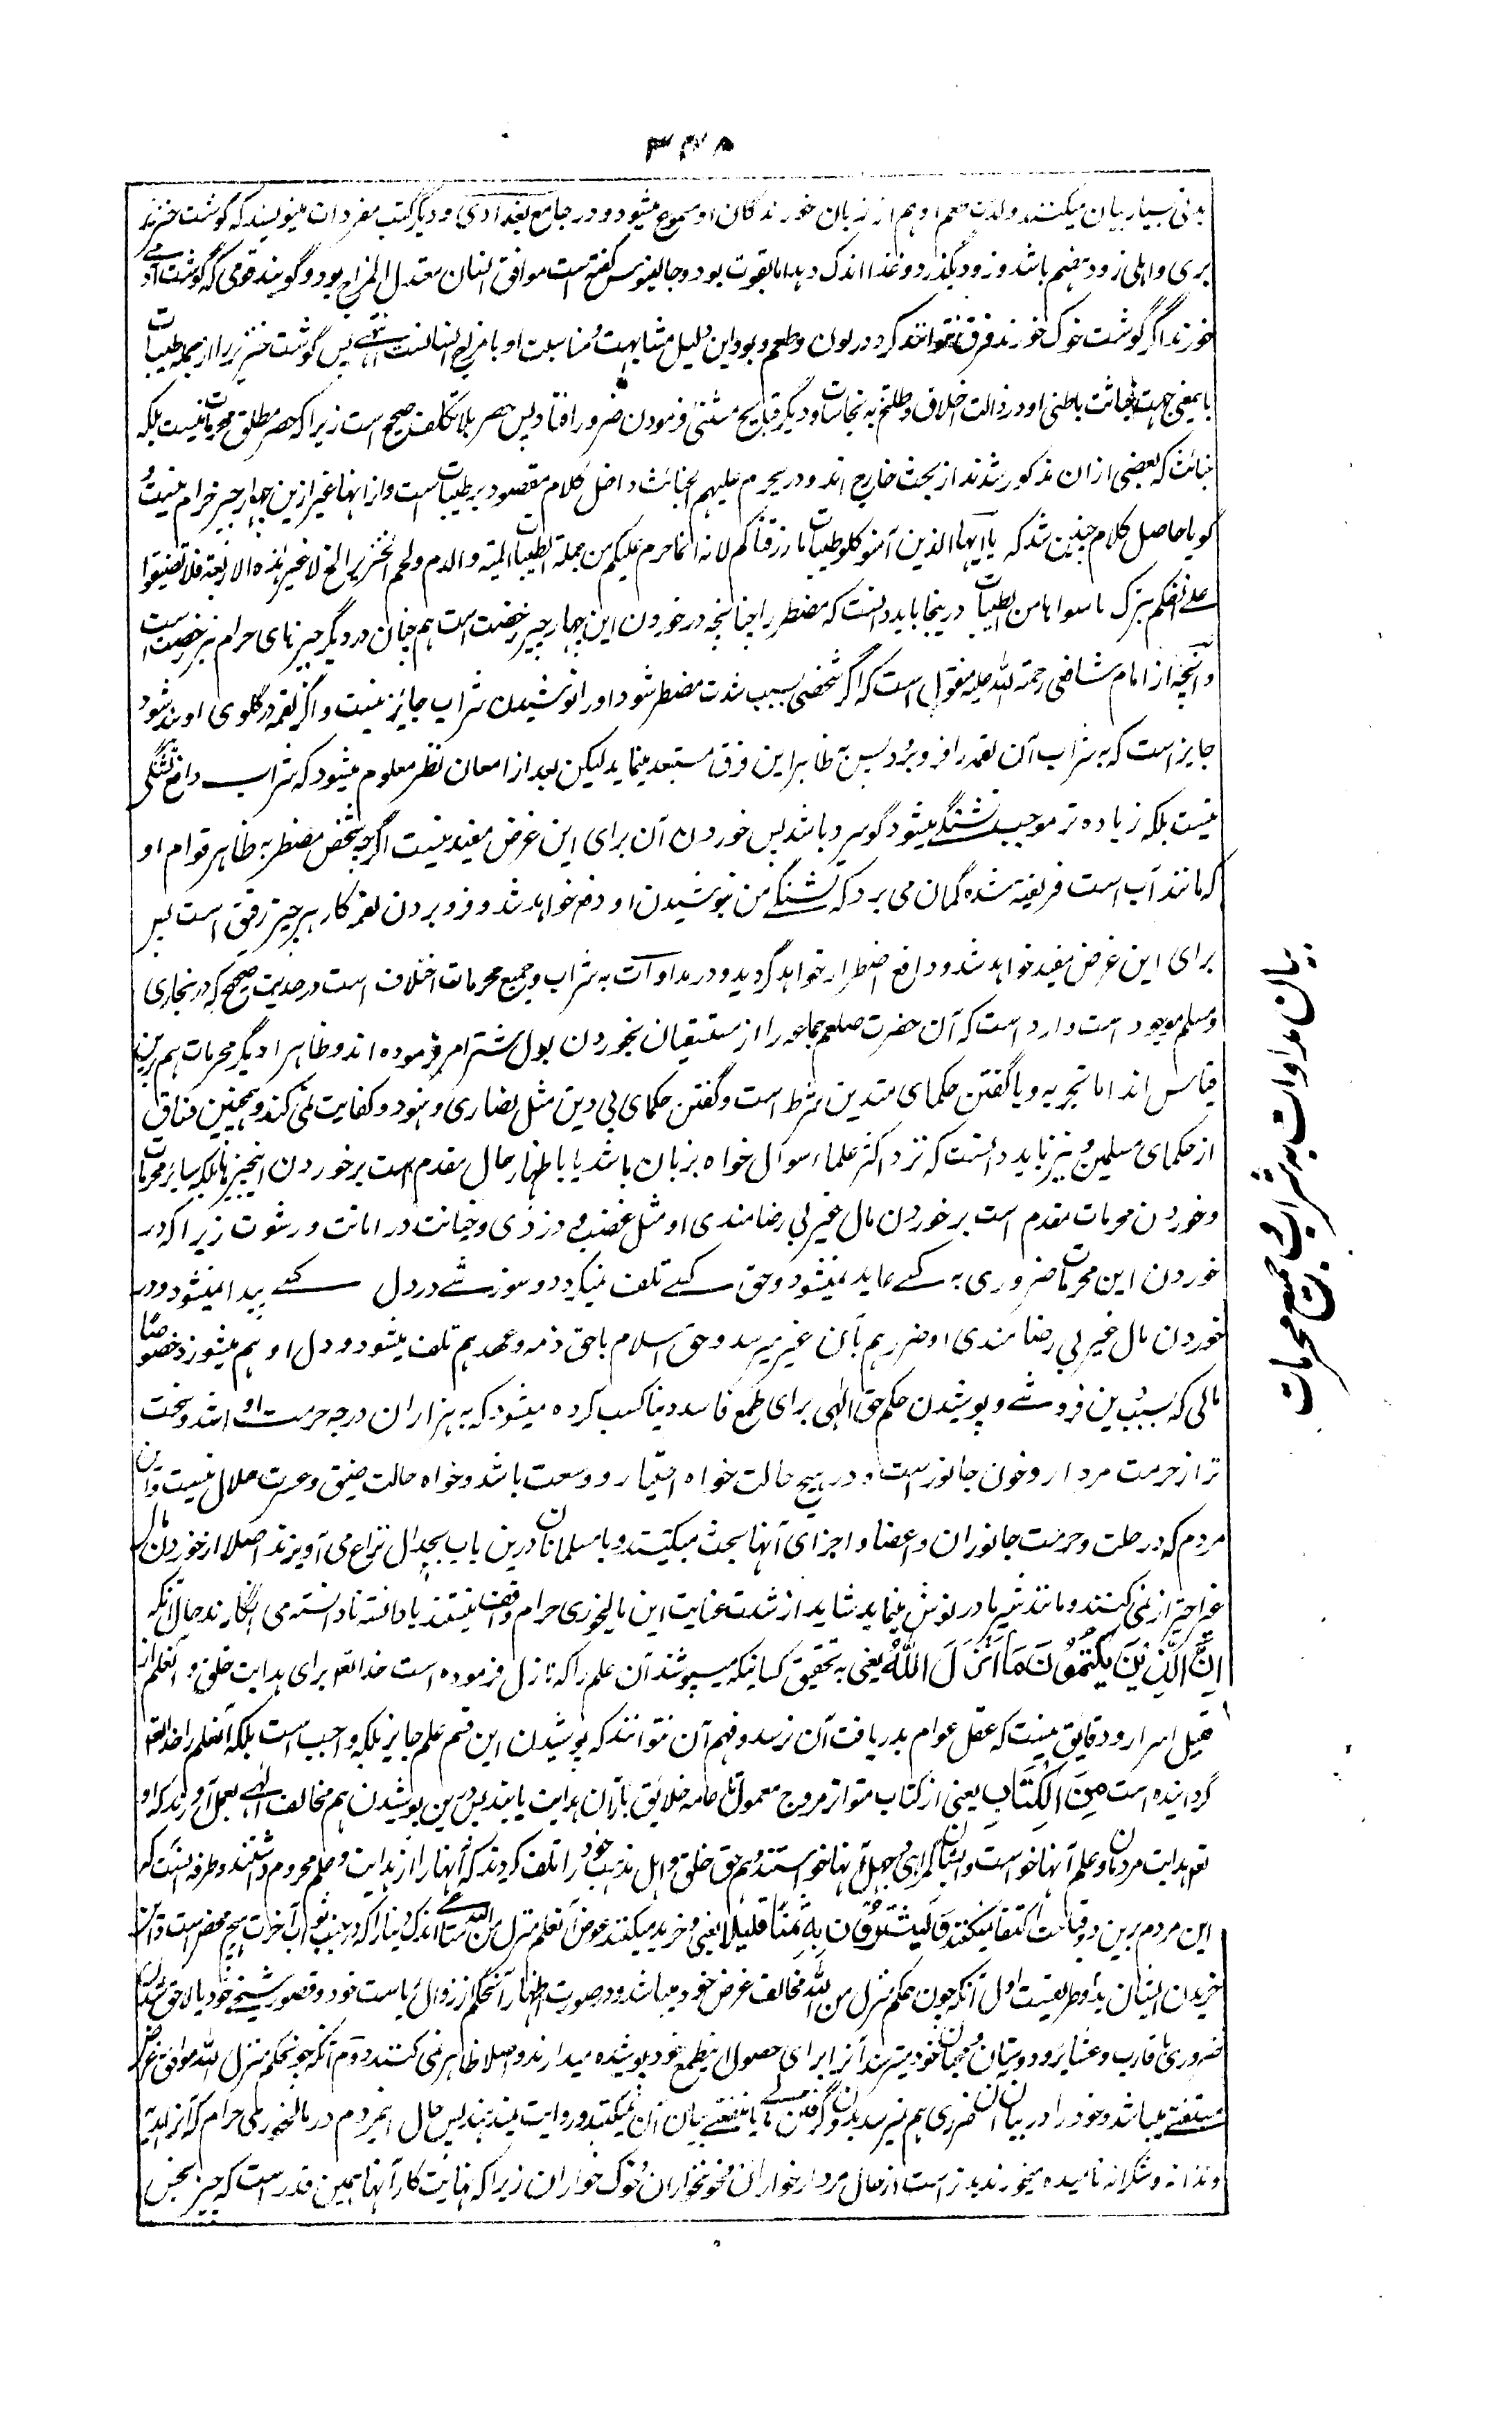 ۳۲۸
بدنی بسیار بیان میکنند ولذت طعم او هم از زبان خورندگان او مسموع میشود و در جامع بغدادی و دیگر کتب مفردات مینویسند که گوشت خنزیر
بری و اهلی زود هضم باشد و زود بگذرد و غذا اندک دهد اما بقوت بود و جالینوس گفته است موافق انسان معتدل المزاج بود و گویند قومی که گوشت آدمی
خورند اگر گوشت خوک خورند فرق نتوانند کرد در لون و طعم و بو و این دلیل مشابهت و مناسبت او با مزاج انسانست انتهی پس گوشت خنزیر را از جمله طیبات
باینمعنی جهت خباثت باطنی او در رذالت اخلاق و تلطخ به نجاسات و دیگر قبایح مستثنی فرمودن ضرور افتاد پس حصر بلا تکلف صحیح است زیرا که حصر مطلق محرمات نیست بلکه
خبائث که بعضی ازان مذکور شدند از بحث خارج اند و در یحرم علیهم الخبائث داخل کلام مقصود بر طیبات است و از انها غیر ازین چهار چیز حرام نیست و
گویا حاصل کلام چنین شد که یا ایها الذین آمنو کلو طیبات ما رزقناکم لانه انما حرم علیکم من جملة الطیبات المیتة والدم ولحم الخنزیر الخ لا غیر هذه الاربعة فلا تضیقوا
علی انفسکم بترک ما سواها من الطیبات درینجا باید دانست که مضطر را چنانچه در خوردن این چهار چیز رخصت است هم چنان در دیگر چیزهای حرام نیز رخصت است
و آنچه از امام شافعی رحمة الله علیه منقول است که اگر شخصی بسبب شدت مضطر شود او را نوشیدن شراب جایز نیست و اگر لقمه در گلوی او بند شود
جایز است که به شراب آن لقمه را فرو برد پس به ظاهر این فرق مستبعد مینماید لیکن بعد از امعان نظر معلوم میشود که شراب دافع تشنگی
نیست بلکه زیاده تر موجب تشنگی میشود گو سرد باشد پس خوردن آن برای این غرض مفید نیست اگرچه شخص مضطر به ظاهر قوام او
که مانند آب است فریفته شده گمان می برد که تشنگی من بنوشیدن او دفع خواهد شد و فرو بردن لقمه کار هر چیز رقیق است پس
برای این غرض مفید خواهد شد و دافع اضطرار خواهد گردید و در مداوات به شراب و جمیع محرمات اختلاف است در حدیث صحیح که در بخاری
و مسلم موجود است وارد است که آن حضرت صلعم جماعه را از مستسقیان بخوردن بول شتر امر فرموده اند و ظاهرا دیگر محرمات هم برین
قیاس اند اما تجربه و یا گفتن حکمای متدین شرط است و گفتن حکمای بی دین مثل نصاری و هنود و کفایت نمی کند و همچنین فساق
از حکمای مسلمین و نیز باید دانست که نزد اکثر علماء سوال خواه بزبان باشد یا باظهار حال مقدم است بر خوردن اینچیزها بلکه سایر محرمات
و خوردن محرمات مقدم است بر خوردن مال غیر بی رضامندی او مثل غصب و دزدی و خیانت در امانت و رشوت زیرا که در
خوردن این محرمات ضرری به کسی عاید نمیشود و حق کسی تلف نمیگردد و سوزشے در دل کسے پیدا نمیشود و در
خوردن مال غیر بی رضامندی او ضرر هم بآن غیر میرسد و حق اسلام یا حق ذمه و عهد هم تلف میشود و دل او هم میسوزد خصوصا
مالی که بسبب دین فروشے و پوشیدن حکم حق الهی برای طمع فاسد دنیا کسب کرده میشود که به هزاران درجه حرمت او اشد و سخت
تر از حرمت مردار و خون جانور است و در هیچ حالت خواه اختیار و وسعت باشد و خواه حالت ضیق و عسرت حلال نیست و این
مردم که در حلت و حرمت جانوران و اعضا و اجزای آنها بحث میکنند و با مسلمانان درین باب بجدال و نزاع می آویزند اصلا از خوردن مال
غیر احتراز نمی کنند و مانند شیر مادر نوش مینمایند شاید از شدت غایت این مالخوری حرام واقف نیستند یا دانسته نادانسته می انگارند حال آنکه
اِنَّ الَّذِیْنَ یَکْتُمُوْنَ مَا اَنْزَلَ اللّٰهُ یعنی به تحقیق کسانیکه میپوشند آن علم را که نازل فرموده است خدا تعالی برای هدایت خلق و آنعلم از
قبیل اسرار و دقایق نیست که عقل عوام بدریافت آن نرسد و فهم آن نتوانند که پوشیدن این قسم علم جایز بلکه واجب است بلکه آنعلم را خدا تعالی
گردانیده است مِنَ الْکِتَابِ یعنی از کتاب متواتر مروج معمول تا عامه خلایق بآن هدایت یابند پس درین پوشیدن هم مخالفت الهی بعمل آوردند که او
تعالی هدایت مردمان و علم آنها خواست و ایشان گمراهی و جهل آنها خواستند و هم حق خلق و اهل مذهب خود را تلف کردند که آنها را از هدایت و علم محروم داشتند و طرفه اینست که
این مردم برین دو قباحت اکتفا نمیکنند وَیَشْتَرُوْنَ بِهٖ ثَمَنًا قَلِیْلًا یعنی و خرید میکنند عوض آنعلم منزل من الله متاع اندک دنیا را که در جنب ثواب آخرت هیچ محض است و آن
خریدن ایشان بدو طریقست اول آنکه چون حکم منزل من الله مخالف غرض خود میباشد و در صورت اظهار آنحکم از زوال ریاست خود و قصور شیخے خود یا لاحق شدن
ضرری باقارب و عشایر و دوستان و محبان خود میترسند آنرا برای حصول این طمع خود پوشیده میدارند و اصلا ظاهر نمی کنند دوم آنکه چون حکم منزل الله موافق غرض
مستفتی میباشد و خود را در بیان آن ضرری هم نمیرسد بدون گرفتن مالے یا منفعتے بیان آن نمیکنند و روایت نمیدهند پس حال اینمردم در مالخوریهای حرام که آنرا هدیه
و نذرانه و شکرانه نامیده میخورند بدتر است از حال مردارخواران و خونخواران و خوک خواران زیرا که نهایت کار آنها همین قدر است که چیز نجس
بیان مداوات به شراب و جمیع محرمات